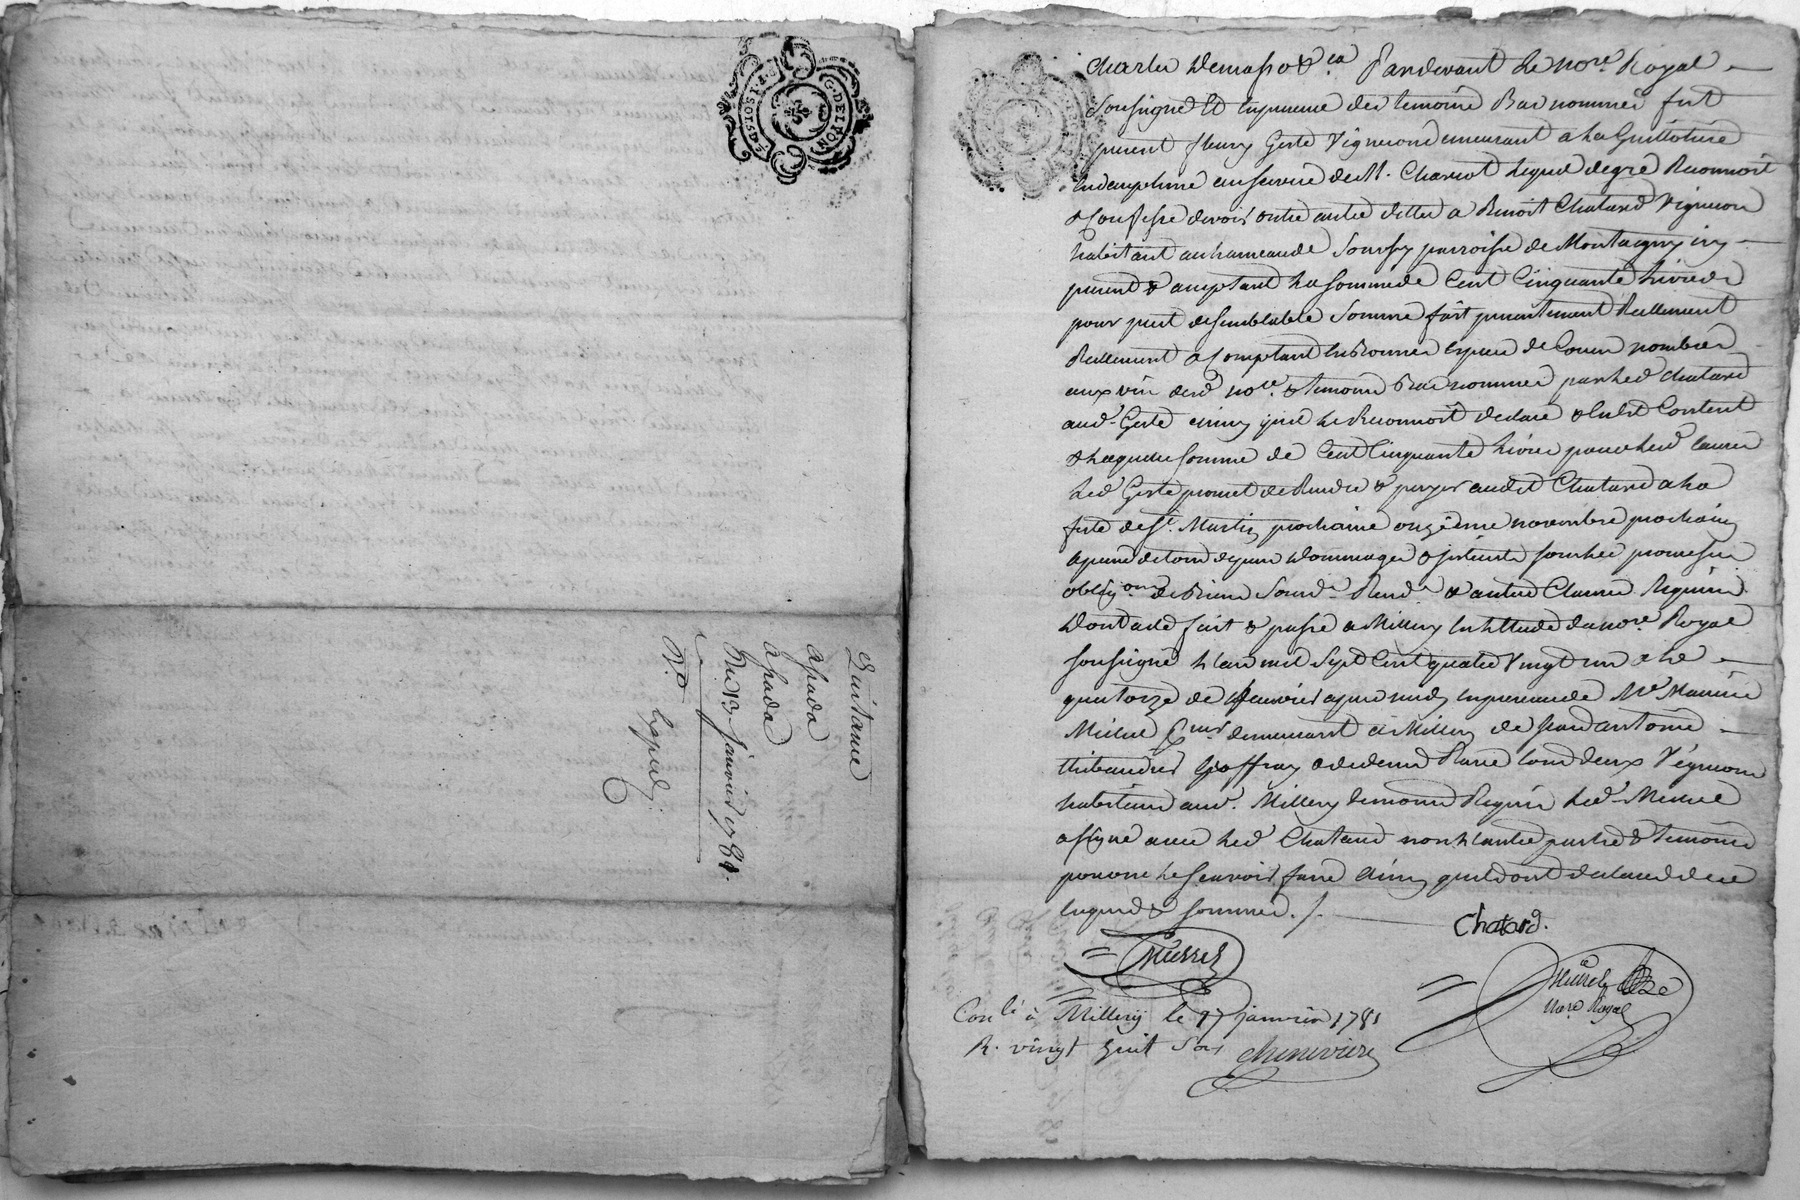 G. DE LYON
Quittance
Du 13 Janvier 1781.
Charles Demasso &.ca Pardevant Le no.re Royal
Soussigné Et En presence des temoins Bas nommés fut
present fleury Geste Vigneron demeurant a La Guillotiere
au service de M. Charcot Lequel de gré Reconnoit
& Confesse devoir entre autre dettes a Benoit Chatard Vigneron
habitant au hameau de Sourzy parroisse de Montagny icy
present & acceptant La somme de Cent Cinquante Livres
pour prest de semblable Somme fait presentement Reellement
Reellement & Comptant En Bonnes Especes de Cours nombrées
aux vûe desd. no.re & temoins Bas nommés par Led. Chatard
aud. Geste ainsy qu'il Le Reconnoit declare & Content
& Laquelle somme de Cent Cinquante Livres
Led. Geste promet de Rendre & payer audit Chatard a La
feste de S.t Martin prochaine onzième novembre prochain
a peine de tous depens Dommages & interets sous Les promesses
oblig.ons de Biens Soum.s Ren.s & autres Clauses Requises
Dont acte fait & passé a Millery En L'Etude du no.re Royal
soussigné L'an mil Sept Cent quatre Vingt un & Le
quatorze de Janvier apres midy En presence de M.e Maurice
Michel demeurant a Millery de Jean antoine
thibaudier Geoffray & de Pierre tous deux Vignerons
habitans aud. Millery temoins Requis Led. Michel
a signé avec Led. Chatard non L'autre partie & temoins
pour ne Le sçavoir faire ainsy qu'ils ont declaré de ce
Enquis & sommés ./.
Chatard.
No.re Royal
Con.lé à Millery le 17 janvier 1781
R. vingt huit sols cheneviere